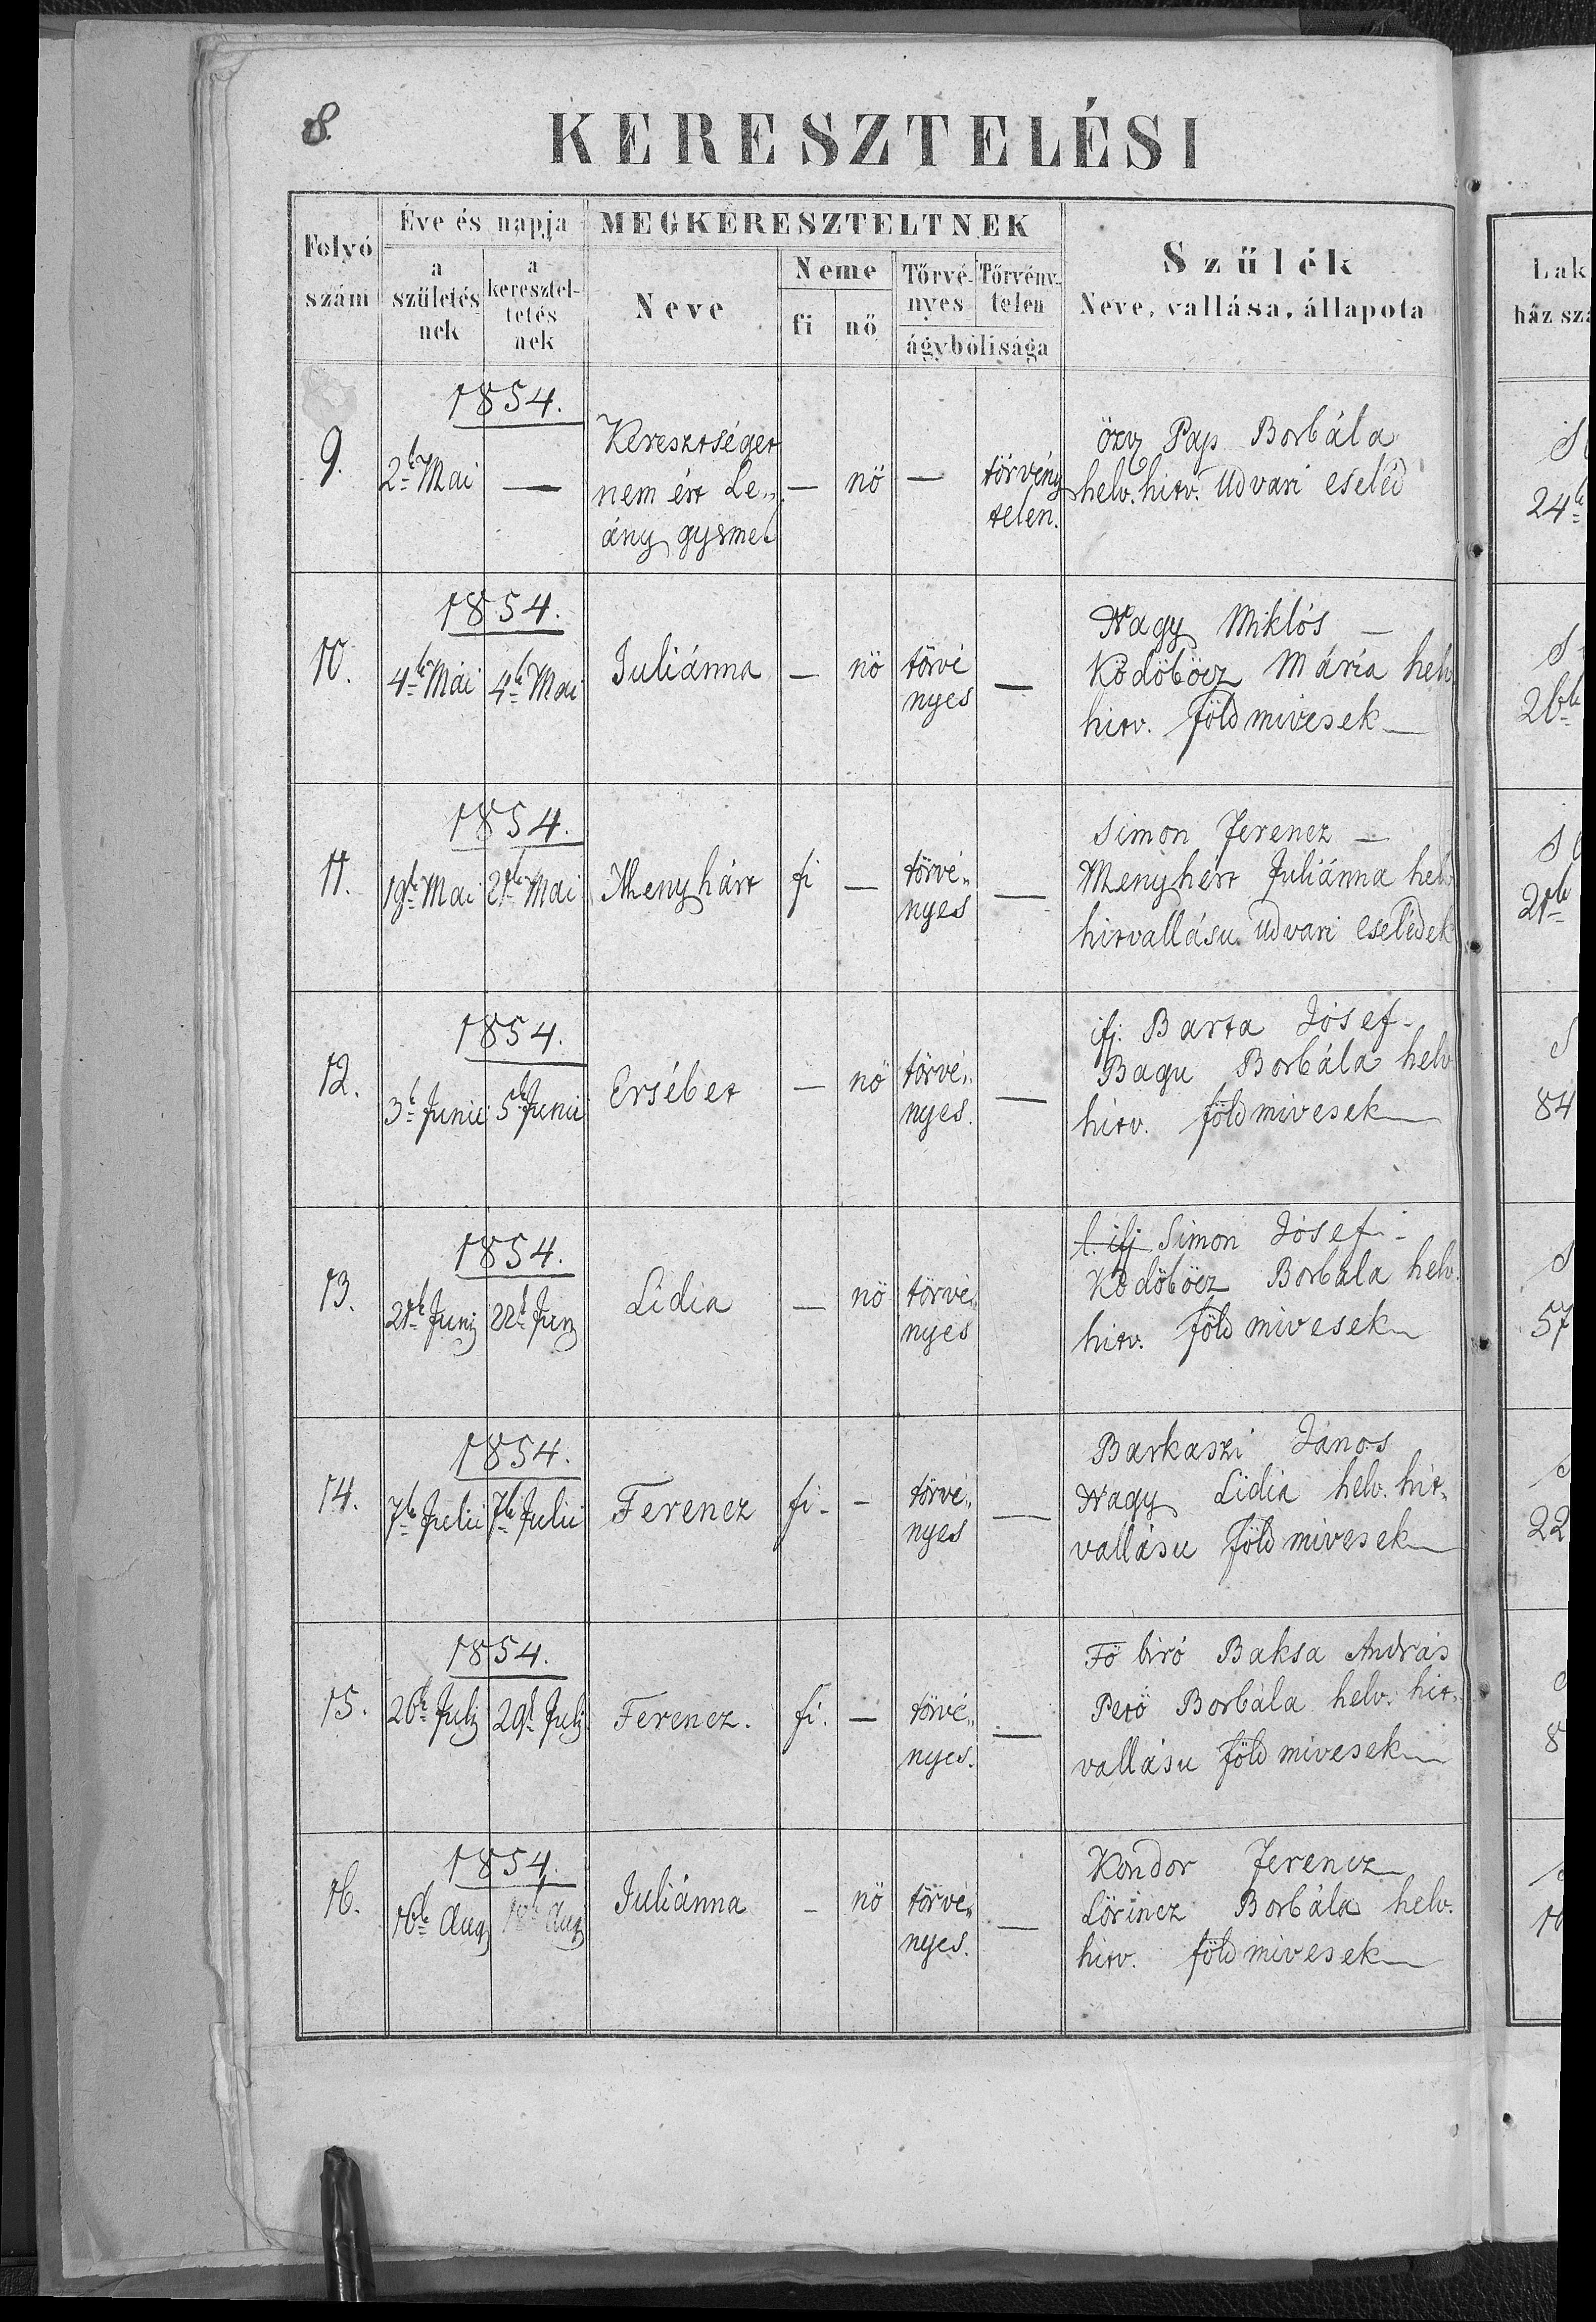 8.
KERESZTELÉSI
Folyó szám
Éve és napja
a születés nek
a keresztel- tetés nek
MEGKERESZTELTNEK
Neve
Neme
fi
nő
Törvé- nyes
Törvény- telen
ágybólisága
Szülék
Neve, vallása, állapota
Lak
ház szá
1854.
9.
2k Mai
—
Keresztséget
nem ért Le„
ány gysmek
—
nö
—
törvény
telen.
özv Pap Borbála
helv. hitv. Udvari eseléd
24k
1854.
10.
4k Mai
4k Mai
Juliánna
—
nö
törvé
nyes
—
Nagy Miklós —
Ködöböcz Mária helv
hitv. földmivesek —
26k
1854.
11.
19k Mai
21k Mai
Menyhárt
fi
—
törvé„
nyes
—
Simon Ferencz —
Menyhért Juliánna helv
hitvallásu Udvari eselédek
21k
1854.
12.
3k Junii
5k Junii
Ersébet
—
nö
törvé„
nyes.
—
ifj. Barta Jósef -
Bagu Borbála helv
hitv. földmivesek
84
1854.
13.
21k Junij
22k Junij
Lidia
—
nö
törvé„
nyes
l. ifj Simon Jósef -
Ködöböcz Borbála helv.
hitv. földmivesek
57
1854.
14.
7k Julii
7k Julii
Ferencz
fi -
-
törvé„
nyes
—
Barkaszi János
Nagy Lidia helv. hit„
vallásu földmivesek
22
1854.
15.
26k Julij
29k Julij
Ferencz.
fi.
—
törvé„
nyes.
—
Fö biró Baksa András
Pető Borbála helv. hit„
vallásu földmivesek
8
1854.
16.
16k Aug
18k Aug
Juliánna
-
nö
törvé„
nyes.
—
Kondor Ferencz
Lörincz Borbála helv.
hitv. földmivesek